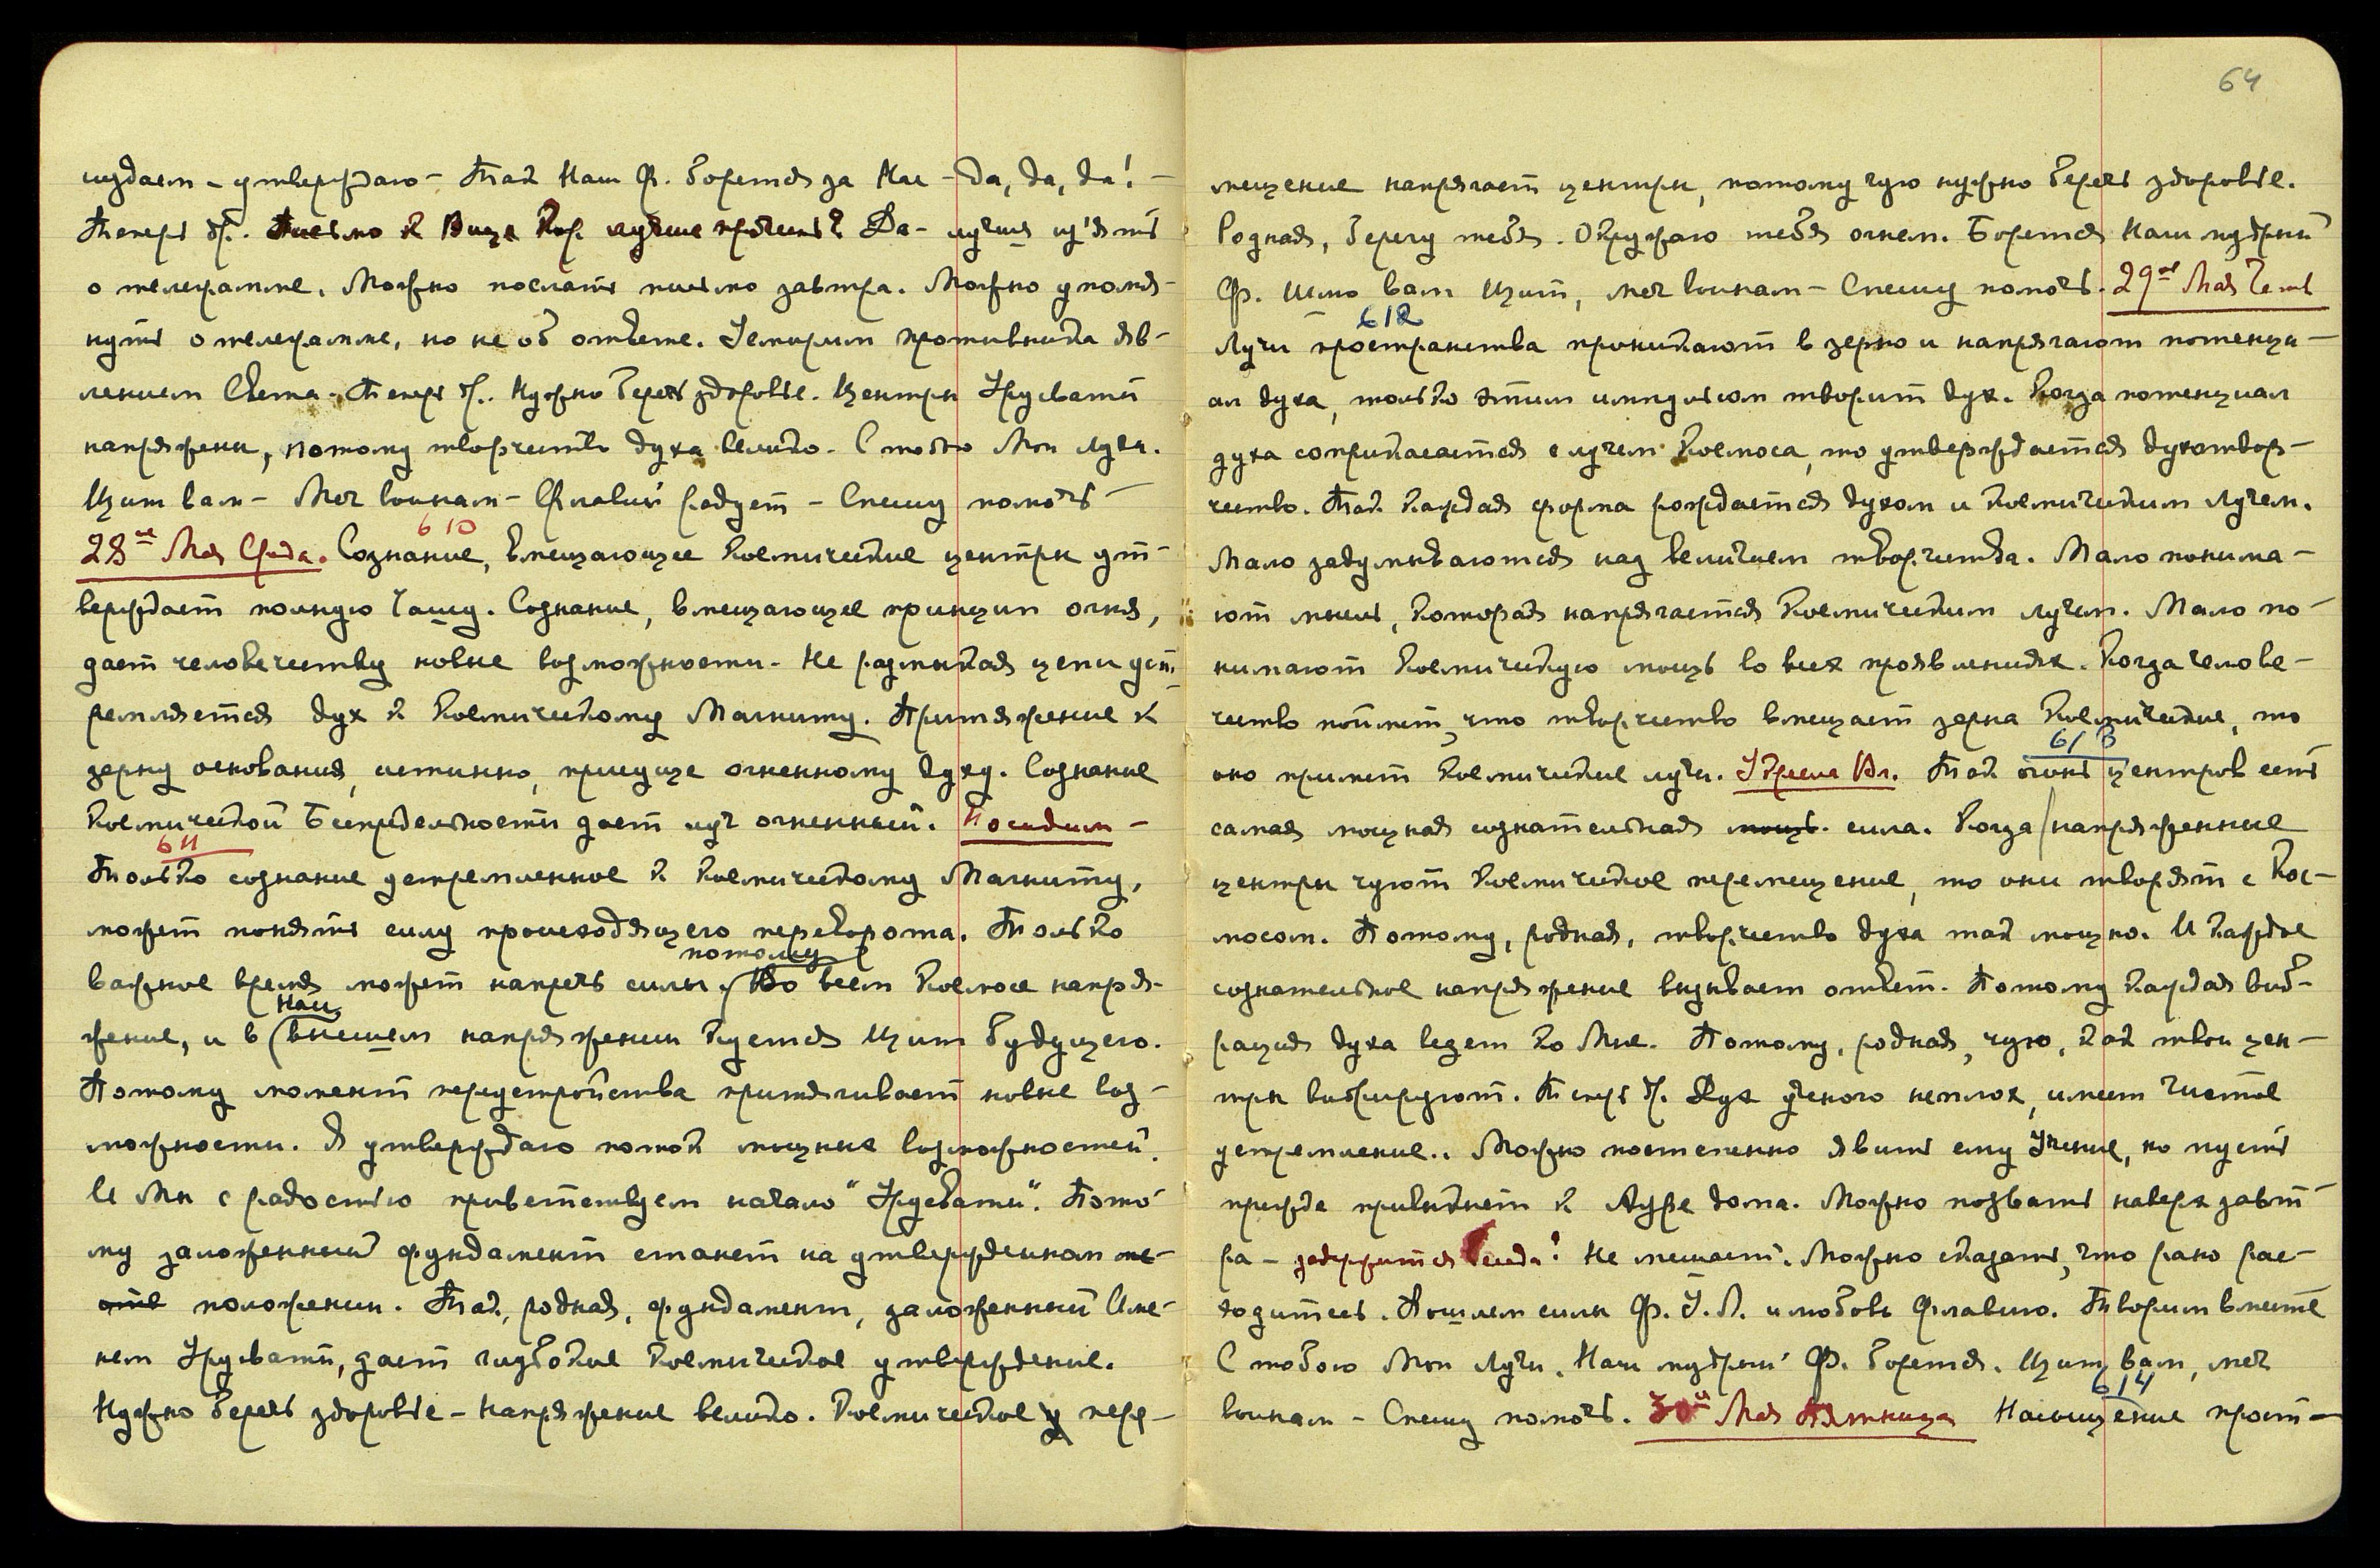 издаем – утверждаю – Так Наш Ф. борется за Нас – Да, да, да! –
Теперь др. Письмо к Вице Кор. лучше прочесть? Да – лучше из'ять
о телеграмме. Можно послать письмо завтра. Можно упомя-
нуть о телеграмме, но не об ответе. Теснит противника яв-
лением Света. Теперь др. Нужно беречь здоровье. Центры Урусвати
напряжены, потому творчество духа велико. С тобою Мои Лучи.
Щит вам – Меч воинам – Флавий радует – Спешу помочь –
610
28ое Мая Среда. Сознание, вмещающее космические центры ут-
верждает полную Чашу. Сознание, вмещающее принцип огня,
дает человечеству новые возможности. Не размыкая цепи уст-
ремляется дух к Космическому Магниту. Притяжение к
зерну основания, истинно, присуще огненному духу. Сознание
Космической Беспредельности дает луч огненный. Посидим –
611
Только сознание устремленное к Космическому Магниту,
может понять силу происходящего переворота. Только
потому
важное время может напречь силы. Во всем Космосе напря-
Наш
жение, и в внешнем напряжении куется Щит Будущего.
Потому момент переустройства притягивает новые воз-
можности. Я утверждаю поток мощных возможностей.
И Мы с радостью приветствуем начало "Урусвати". Пото-
му заложенный фундамент станет на утвержденном ме-
сте положении. Так, родная, фундамент, заложенный Име-
нем Урусвати, дает глубокое космическое утверждение.
Нужно беречь здоровье – напряжение велико. Космическое у пере-
64
мещение напрягает центры, потому чую нужно беречь здоровье.
Родная, берегу тебя. Окружаю тебя огнем. Борется Наш мудрый
Ф. Шлю вам Щит, меч воинам – Спешу помочь. 29ое Мая Четв
612
Лучи пространства проникают в зерно и напрягают потенци-
ал духа, только этим импульсом творит дух. Когда потенциал
духа соприкасается с лучем Космоса, то утверждается духотвор-
чество. Так каждая форма рождается духом и космическим лучем.
Мало задумываются над величием творчества. Мало понима-
ют мысль, которая напрягается космическим лучем. Мало по-
нимают космическую мощь во всех проявлениях. Когда челове-
чество поймет, что творчество вмещает зерна Космические, то
613
оно примет космические лучи. У Кресла Вл. Так огонь центров есть
самая мощная сознательная мощь. сила. Когда напряженные
центры чуют космическое перемещение, то они творят с Кос-
мосом. Потому, родная, творчество духа так мощно. И каждое
сознательное напряжение вызывает ответ. Потому каждая виб-
рация духа ведет ко Мне. Потому, родная, чую, как твои цен-
тры вибрируют. Теперь др. Дух ученого неплох, имеет чистое
устремление.. Можно постепенно явить ему Учение, но пусть
прежде привыкнет к Ауре дома. Можно позвать наверх завт-
ра – задержится беседа? Не мешает. Можно сказать, что рано рас-
ходитесь. Пошлем силы Ф. У. Л. и любовь Флавию. Творим вместе
С тобою Мои Лучи. Наш мудрый Ф. борется. Щит вам, меч
614
воинам – Спешу помочь. 30ое Мая Пятница Насыщение прост-